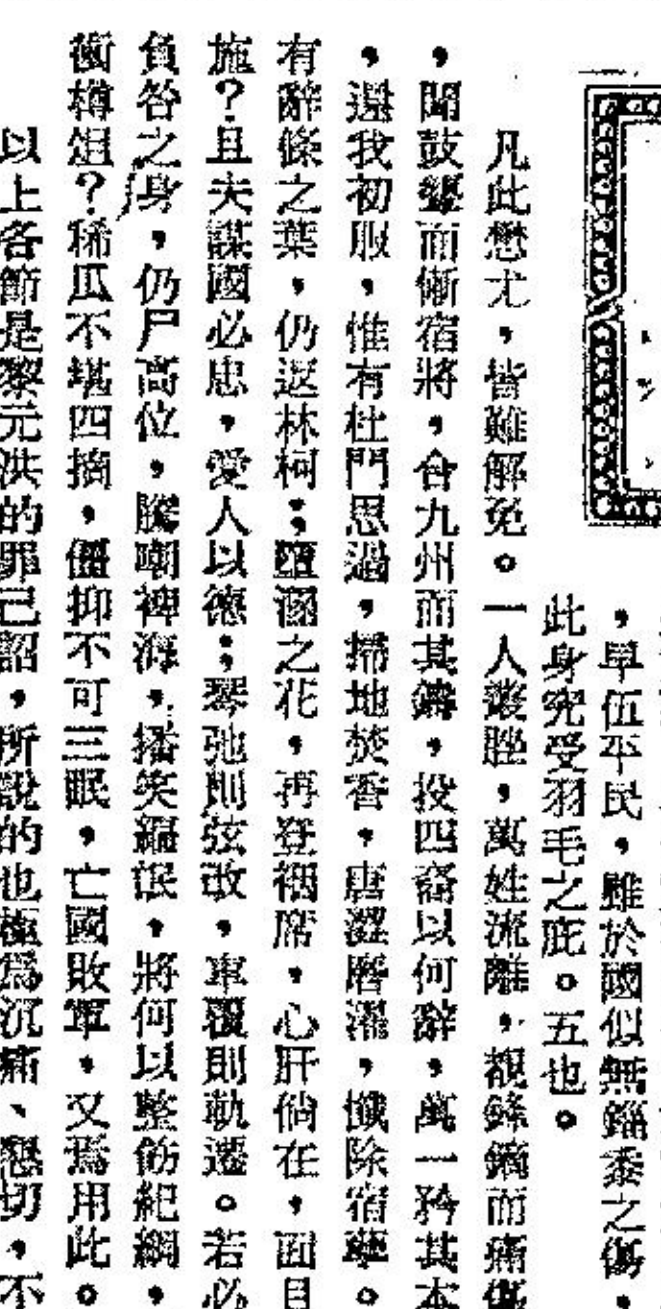 ，早伍平民，雖於國似無錙黍之傷，
此身究受羽毛之庇。五也。
凡此懋尤，皆難解免。一人叢脞，萬姓流離，覩鋒鏑而痛傷
，聞鼓鼙而慚宿將，合九州而莫鑄，投四裔以何辭，萬一矜其本
，還我初服，惟有杜門思過，掃地焚香，磨濯，懺除宿孽。
有辭條之葉，仍返林柯；墮溷之花，再登裀席，心肝倘在，面目
施？且夫謀國必忠，愛人以德；琴弛則弦改，車覆則軌遷。若必
負咎之身，仍尸高位，騰嘲裨海，播笑編氓，將何以整飭紀綱，
衡樽俎？稀瓜不堪四摘，僵抑不可三眠，亡國敗軍，又焉用此。
以上各節是黎元洪的罪己詔，所說的也極為沉痛、懇切，不